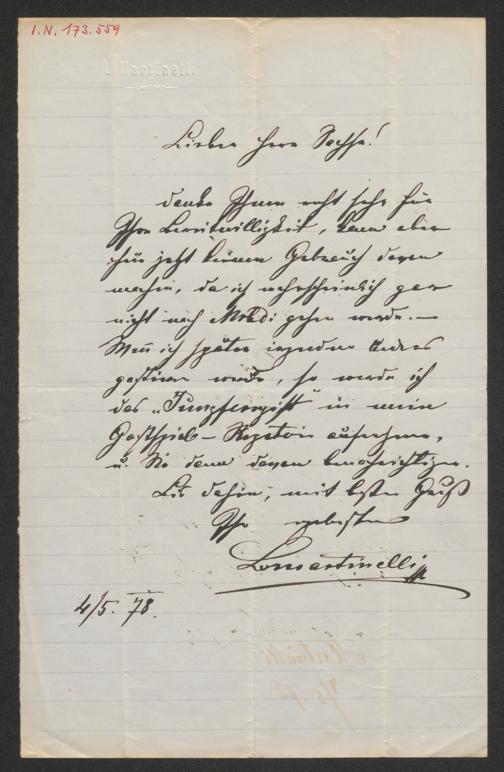 I.N. 173.559
L. Martinelli
Lieber Herr Sachse!
danke Ihnen recht sehr für
Ihre Bereitwilligkeit, kann aber
für jetzt keinen Gebrauch davon
machen, da ich wahrscheinlich gar
nicht nach gehen werde. –
Wenn ich später irgendwo anders
gastiren werde, so werde ich
das „Jungferngift“ in mein
Gastspiel – Repetoir aufnehmen,
u. Sie dann davon benachrichtigen.
Bis dahin, mit besten Gruß
Ihr ergebenster
LMartinelli
4/5. 78.